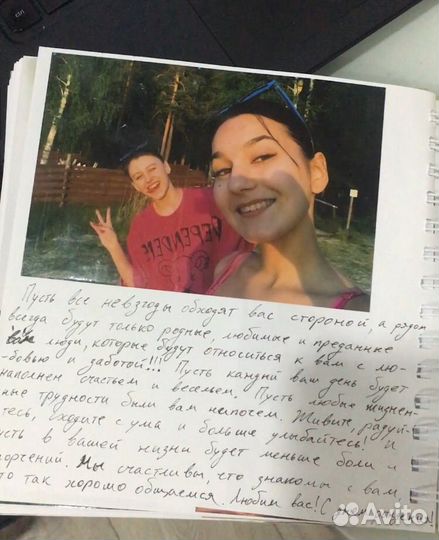 ctrl
DEPENDEN
Пусть все невзгоды обходят вас стороной, а рядом
всегда будут только родные, любимые и преданные
люди, которые будут относиться к вам с лю-
-бовью и заботой!!! Пусть каждый ваш день будет
наполнен счастьем и весельем. Пусть любые жизнен-
ные трудности были вам нипочём. Живите, радуй-
тесь, сходите с ума и больше улыбайтесь! И
усть в вашей жизни будет меньше боли и
орчений. Мы счастливы, что знакомы с вами,
то так хорошо общаемся. Любим вас! С Днём рождения!
Avito